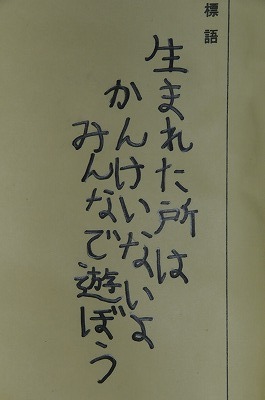 標語
生まれた所は
かんけいないよ
みんなで遊ぼう